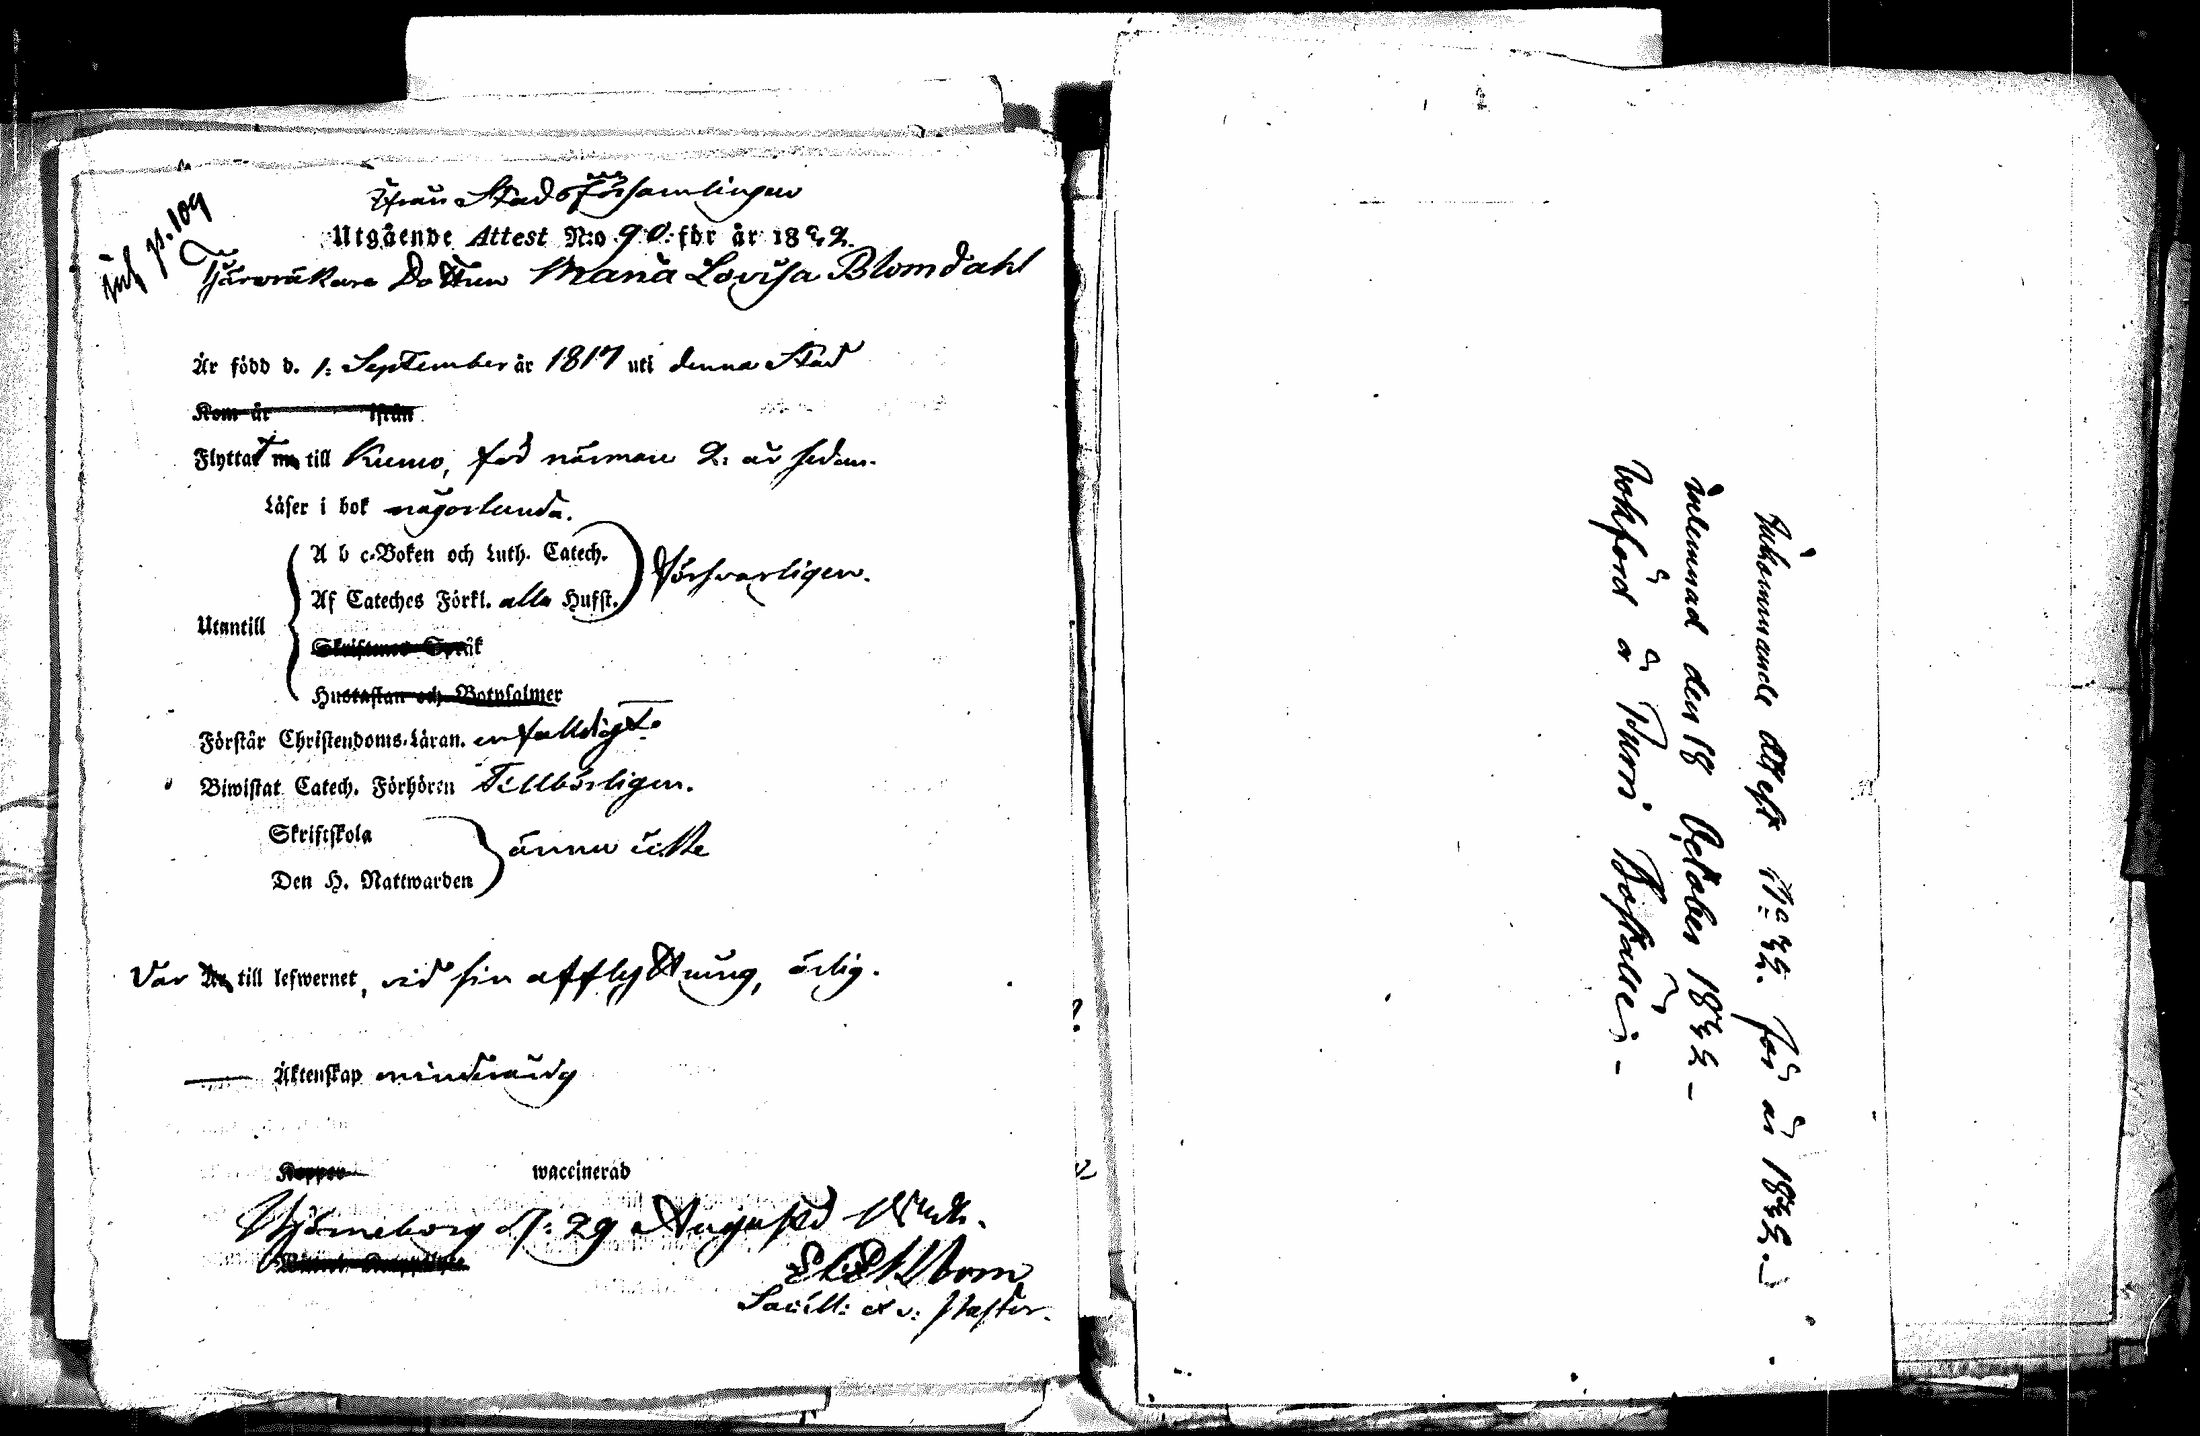 inf p. 109
Från Stadsförsamlingen
Utgående Attest N:o 90. för år 1832.
Tjärvräkare Dottren Maria Lovisa Blomdahl
Är född d. 1: September år 1817 uti denna Stad
Kom år ifrån
Flyttat till Kumo, för närmare 2: år sedan.
Läser i bok någorlunda.
A b c-Boken och Luth. Catech.
Försvarligen.
Af Cateches Förkl. alla Hufst.
Utantill
Skriftenes Språk
Hustaflan och Botpsalmer
Förstår Christendoms-Läran. enfalldigt.
Biwistat Catech. Förhören Tillbörligen.
Skriftskola
ännu icke
Den H. Nattwarden
Var till lefwernet, vid sin afflyttning, ärlig.
Äktenskap minderårig
Koppor waccinerad
Björneborg d: 29 Augusti
Sacell: v: Pastor.
Inkommande Attest N:o för år
inlemnad den 18 October
bokförd å Purri Boställe